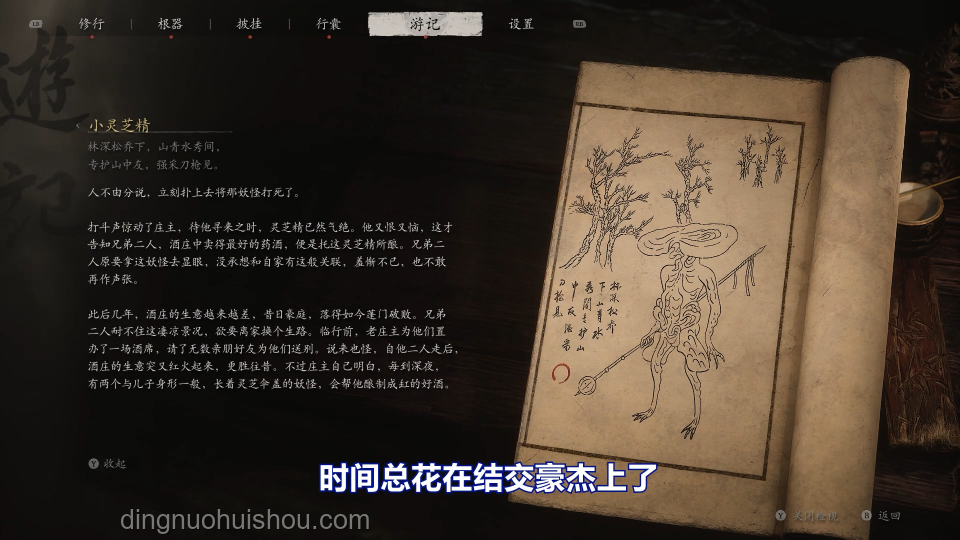 LB
修行
根器
披挂
行囊
游记
设置
RB
遊
记
小灵芝精
林深松乔下，山青水秀间，
专护山中友，强采刀枪见。
人不由分说，立刻扑上去将那妖怪打死了。
打斗声惊动了庄主，待他寻来之时，灵芝精已然气绝。他又恨又恼，这才
告知兄弟二人，酒庄中卖得最好的药酒，便是托这灵芝精所酿。兄弟二
人原要拿这妖怪去显眼，没承想和自家有这般关联，羞惭不已，也不敢
再作声张。
此后几年，酒庄的生意越来越差，昔日豪庭，落得如今蓬门破败。兄弟
二人耐不住这凄凉景况，欲要离家换个生路。临行前，老庄主为他们置
办了一场酒席，请了无数亲朋好友为他们送别。说来也怪，自他二人走后，
酒庄的生意突又红火起来，更胜往昔。不过庄主自己明白，每到深夜，
有两个与儿子身形一般，长着灵芝伞盖的妖怪，会帮他酿制成缸的好酒。
林深松乔
下山青水
秀间专护山
中友强采
刀枪见
Y 收起
时间总花在结交豪杰上了
dingnuohuishou.com
Y 关闭检视
B 返回